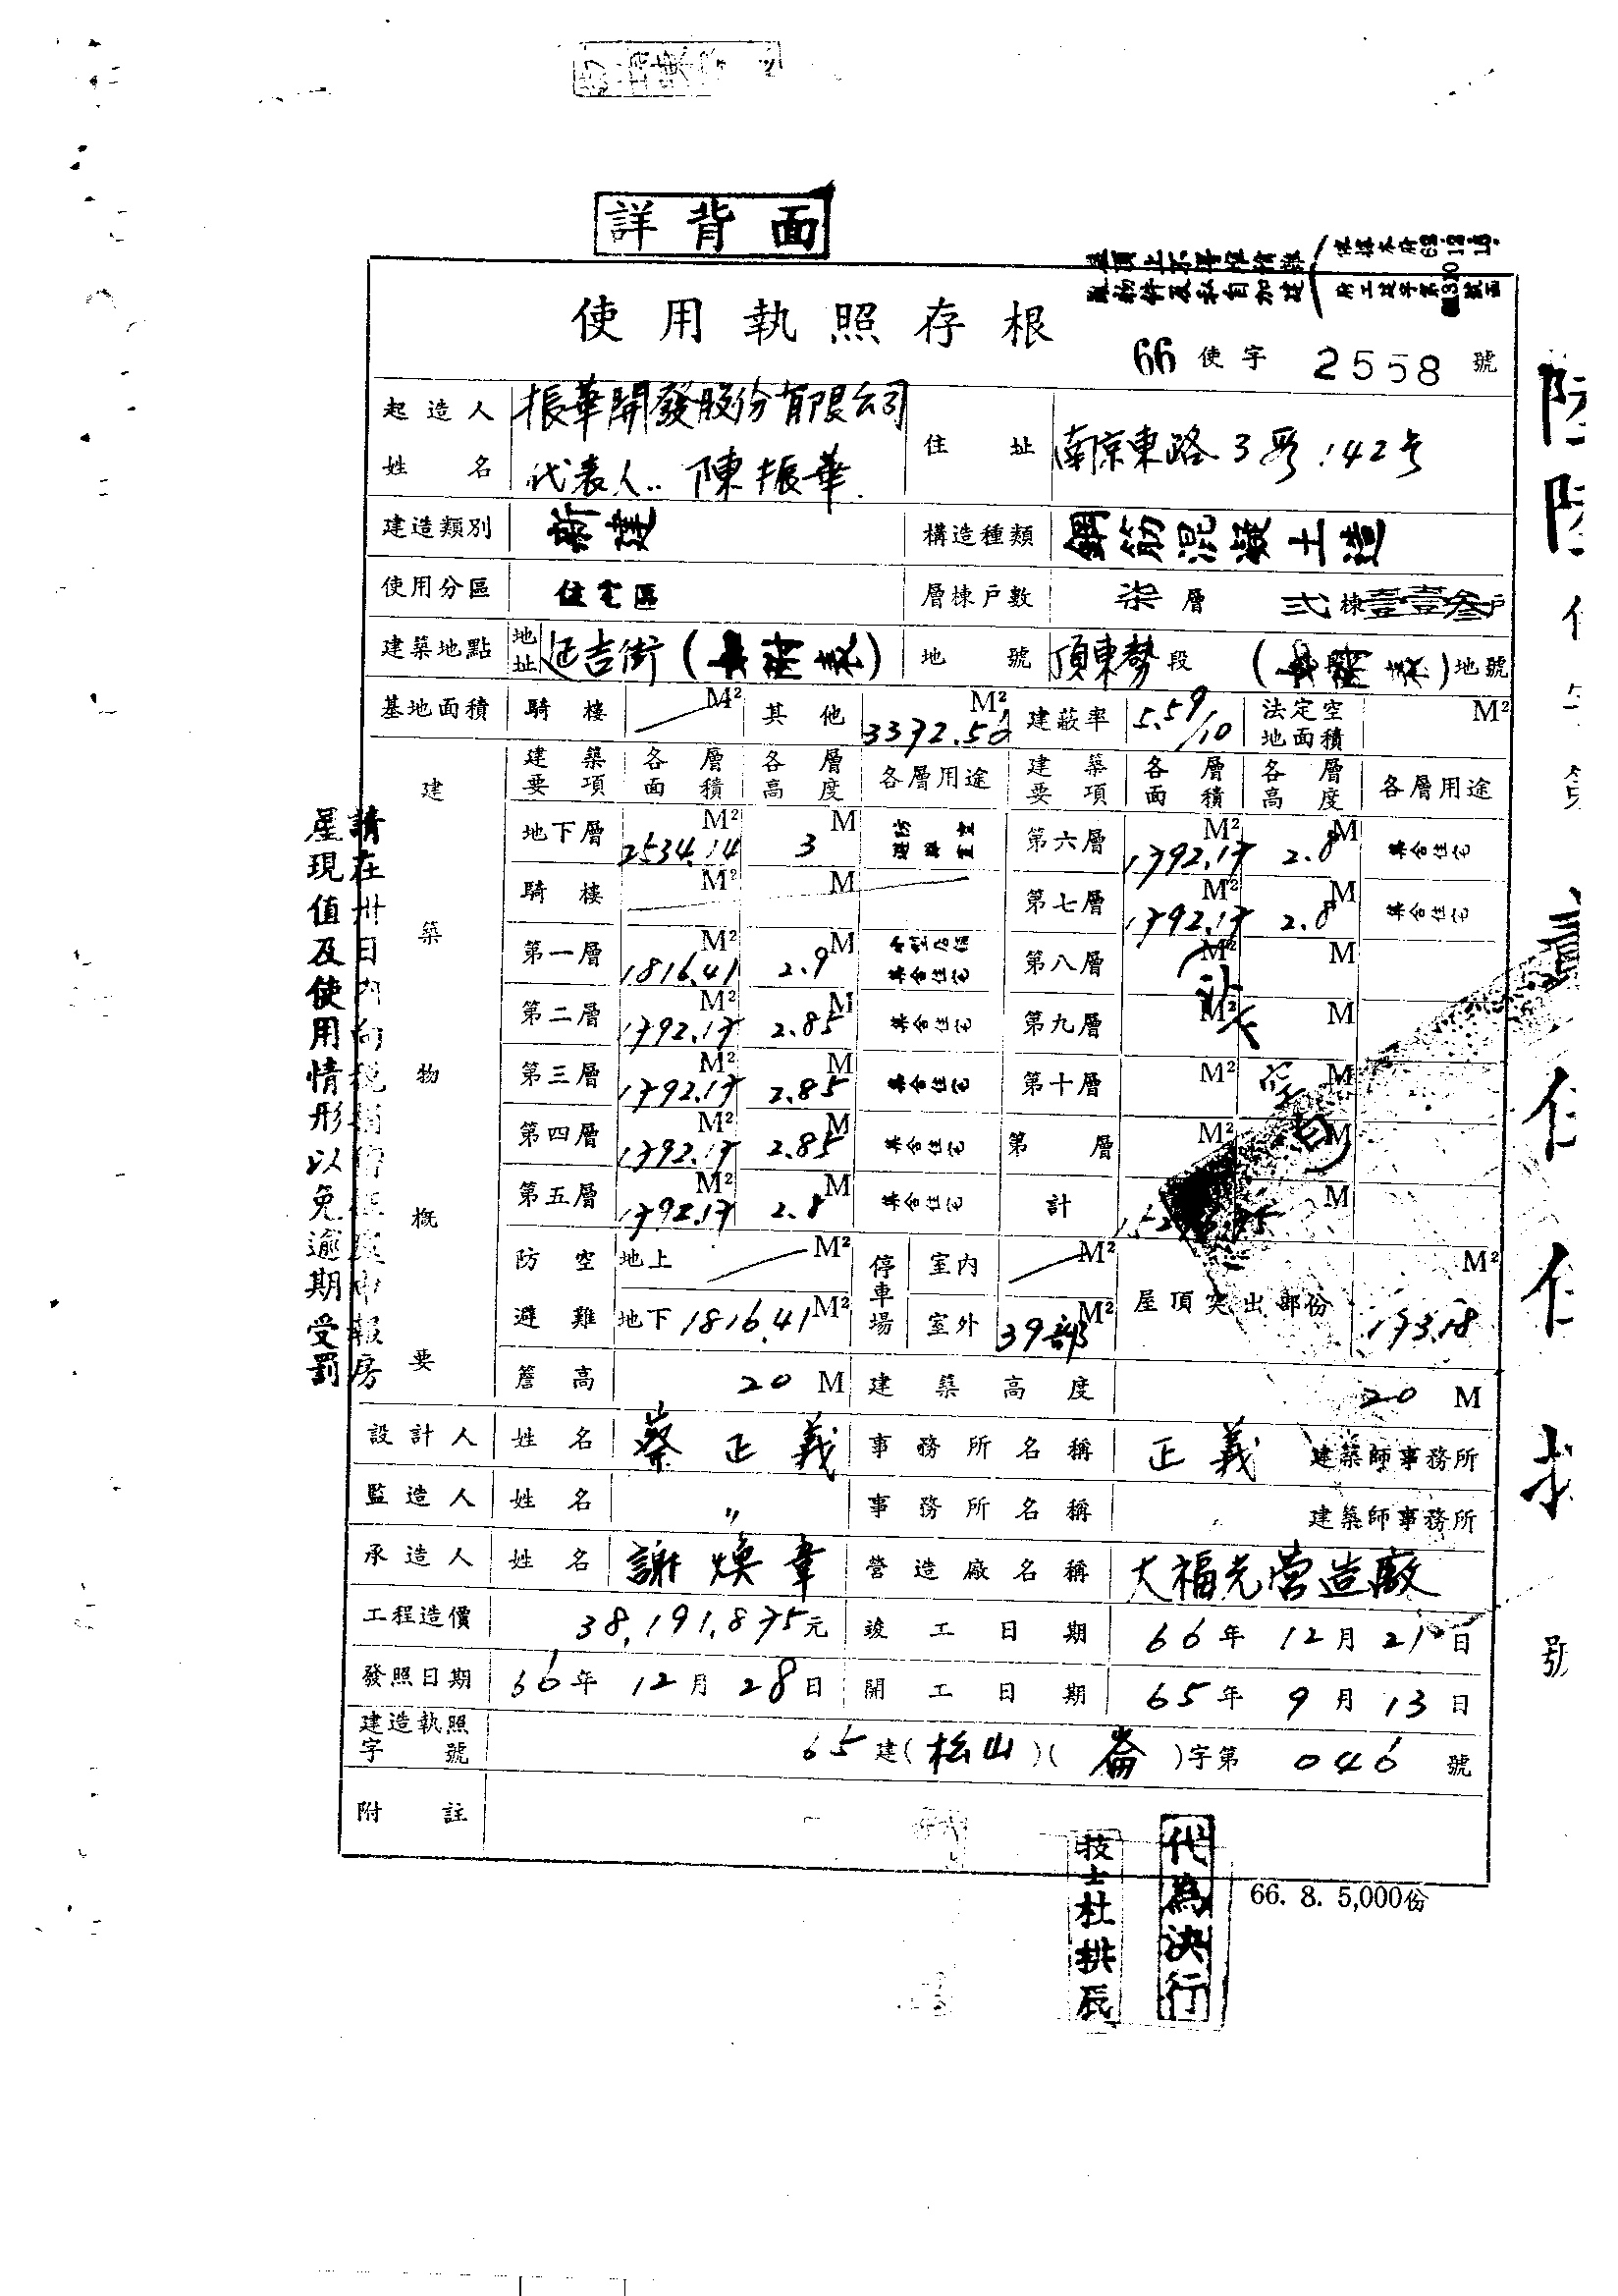 詳背面
使用執照存根
66使字2558號
起造人姓名 振華開發股份有限公司
代表人:陳振華
住址 南京東路3段142号
建造類別 新建 構造種類 鋼筋混凝土造
使用分區 住宅區 層棟戶數 柒層 弍棟壹壹叁戶
建築地點 地址 延吉街( ) 地號 頂東勢段( )地號
基地面積 騎樓 M² 其他 3372.56 M² 建蔽率 5.59/10 法定空地面積 M²
建築物概要
建築要項 各層面積 各層高度 各層用途 建築要項 各層面積 各層高度 各層用途
地下層 2534.14 M² 3 M 第六層 1792.17 M² 2.8 M 集合住宅
騎樓 M² M 第七層 1792.17 M² 2.8 M 集合住宅
第一層 1816.41 M² 2.9 M 集合住宅 第八層 M² M
第二層 1792.17 M² 2.85 M 集合住宅 第九層 M² M
第三層 1792.17 M² 2.85 M 集合住宅 第十層 M² M
第四層 1792.17 M² 2.85 M 集合住宅 第 層 M² M
第五層 1792.17 M² 2.8 M 集合住宅 計 M
以下空白
防空避難 地上 M² 停車場 室內 M² 屋頂突出部份 173.18 M²
地下 1816.41 M² 室外 39部 M²
簷高 20 M 建築高度 20 M
設計人 姓名 蔡正義 事務所名稱 正義 建築師事務所
監造人 姓名 〃 事務所名稱 建築師事務所
承造人 姓名 謝煥章 營造廠名稱 大福光營造廠
工程造價 38,191,875元 竣工日期 66年12月21日
發照日期 66年12月28日 開工日期 65年9月13日
建造執照字號 65建(松山)(崙)字第046號
附註
請在卅日內向稅捐稽徵處申報房
屋現值及使用情形以免逾期受罰
代為決行
技士杜拱辰
66. 8. 5,000份
號